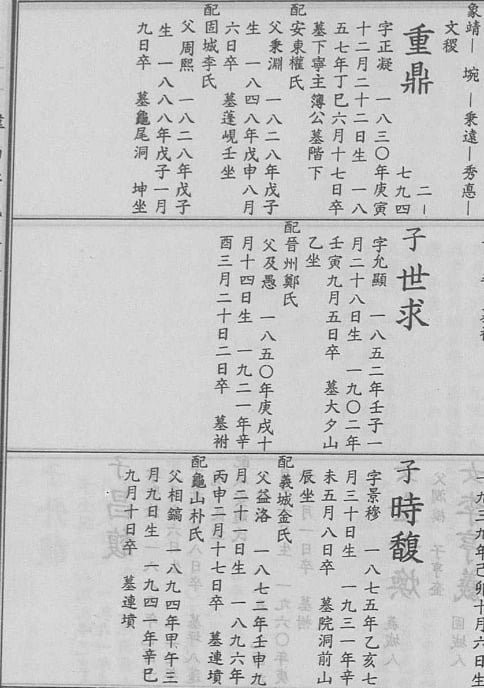 象靖－ 埦 －秉遠－秀悳－
文稷
二－
七九四
重鼎
字正凝 一八三〇年庚寅
十二月二十二日生 一八
五七年丁巳六月十七日卒
墓下寧主簿公墓階下
配安東權氏
父秉淵 一八二八年戊子
生 一八四八年戊申八月
六日卒 墓蓬峴壬坐
配固城李氏
父周熙 一八二八年戊子
生 一八八八年戊子一月
九日卒 墓龜尾洞 坤坐
子 世求
字允顯 一八五二年壬子一
月二十八日生 一九〇二年
壬寅九月五日卒 墓大夕山
乙坐
配晉州鄭氏
父及愚 一八五〇年庚戌十
月十四日生 一九二一年辛
酉三月二十日二日卒 墓祔
一九三九年己卯十月六日生
子 時馥
字景穆 一八七五年乙亥七
月三十日生 一九三一年辛
未五月八日卒 墓院洞前山
辰坐
配義城金氏
父益洛 一八七二年壬申九
月二十一日生 一八九六年
丙申二月十七日卒 墓連墳
配龜山朴氏
父相鎬 一八九四年甲午三
月九日生 一九四一年辛巳
九月十日卒 墓連墳